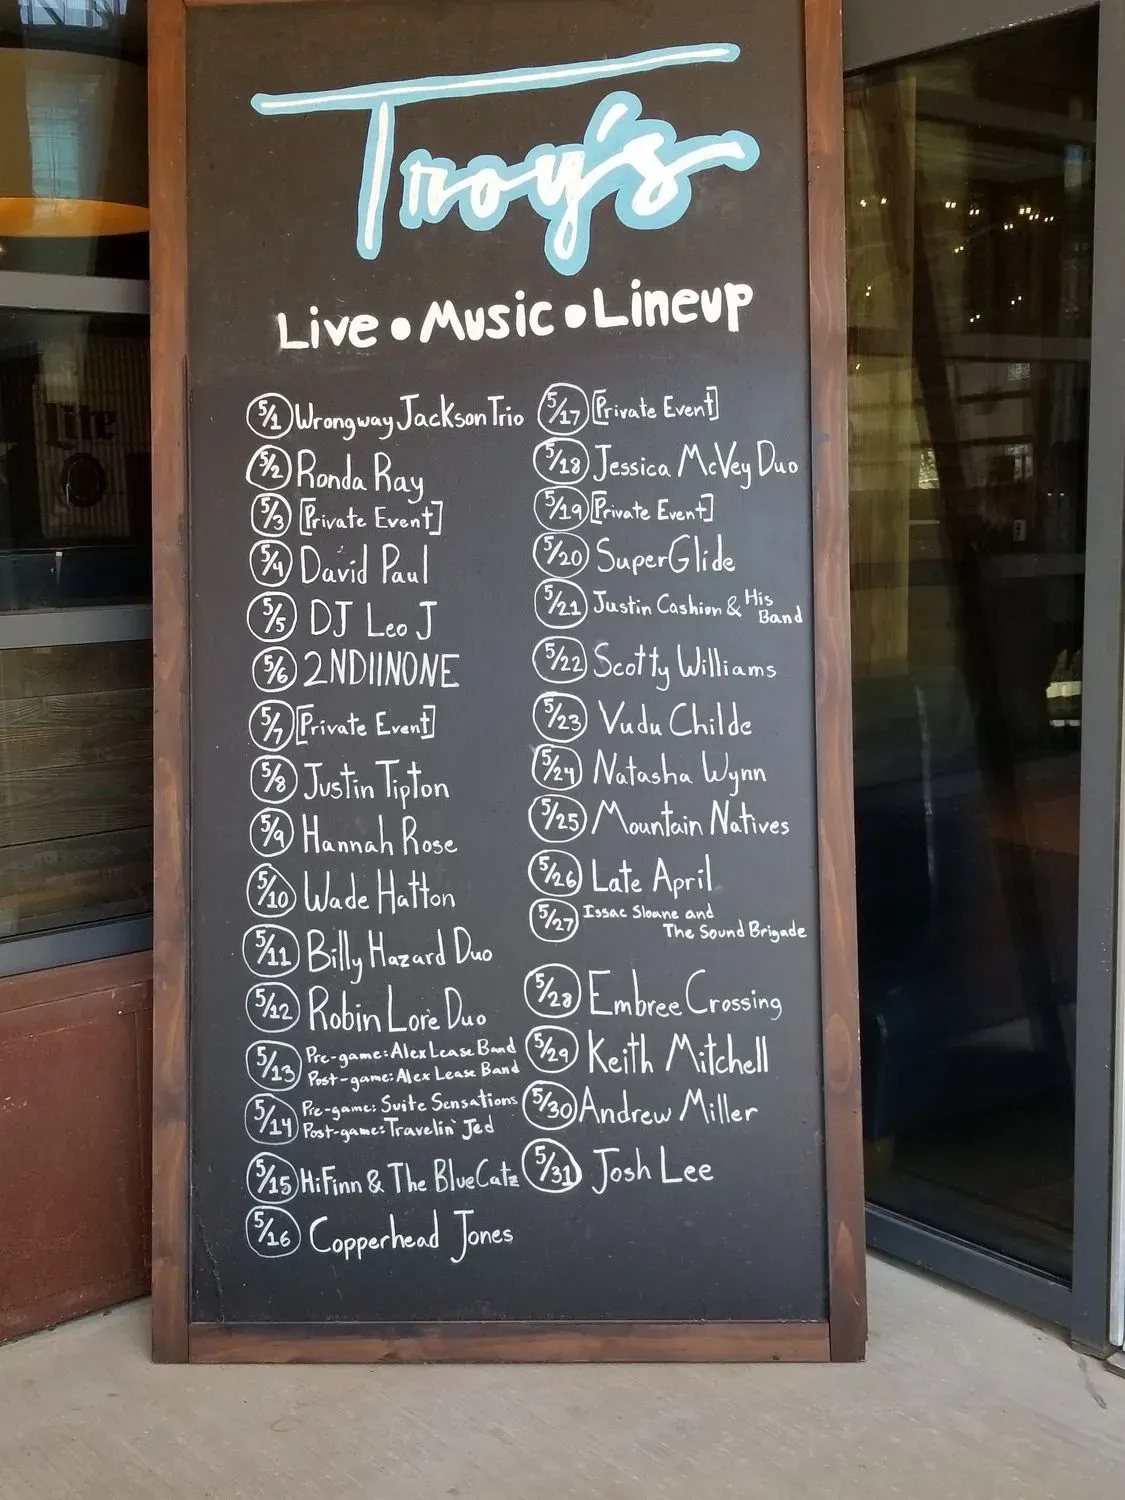 Troy's
Live • Music • Lineup
5/1 Wrongway Jackson Trio
5/2 Ronda Ray
5/3 [Private Event]
5/4 David Paul
5/5 DJ Leo J
5/6 2NDIINONE
5/7 [Private Event]
5/8 Justin Tipton
5/9 Hannah Rose
5/10 Wade Hatton
5/11 Billy Hazard Duo
5/12 Robin Lore Duo
5/13 Pre-game: Alex Lease Band
Post-game: Alex Lease Band
5/14 Pre-game: Suite Sensations
Post-game: Travelin' Jed
5/15 HiFinn & The BlueCatz
5/16 Copperhead Jones
5/17 [Private Event]
5/18 Jessica McVey Duo
5/19 [Private Event]
5/20 SuperGlide
5/21 Justin Cashion & His
Band
5/22 Scotty Williams
5/23 Vudu Childe
5/24 Natasha Wynn
5/25 Mountain Natives
5/26 Late April
5/27 Issac Sloane and
The Sound Brigade
5/28 Embree Crossing
5/29 Keith Mitchell
5/30 Andrew Miller
5/31 Josh Lee
Lite